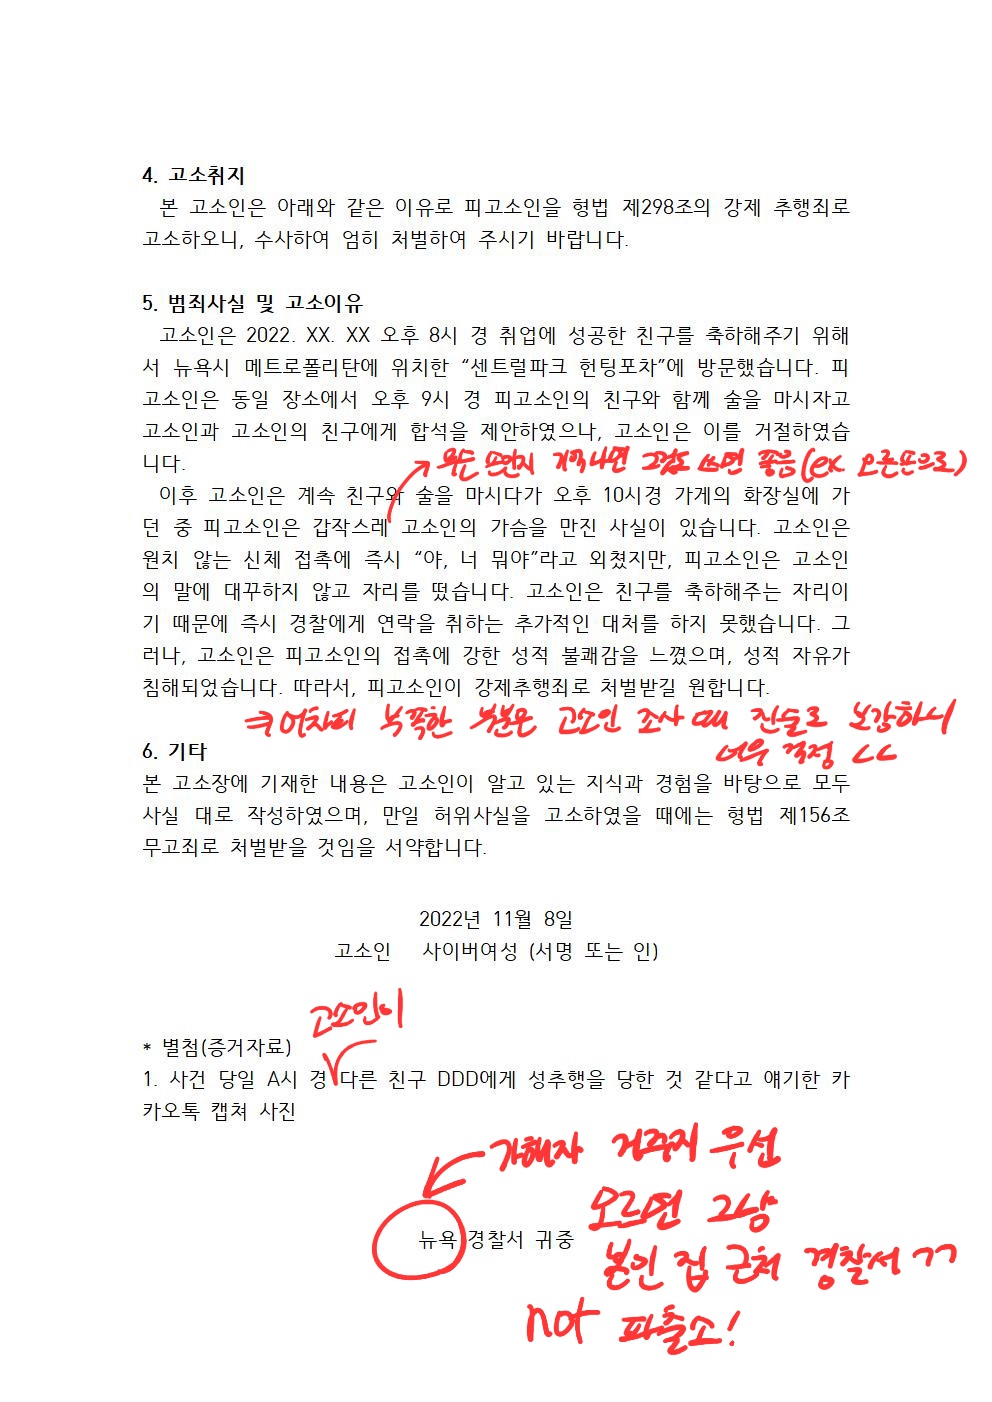 4. 고소취지
본 고소인은 아래와 같은 이유로 피고소인을 형법 제298조의 강제 추행죄로
고소하오니, 수사하여 엄히 처벌하여 주시기 바랍니다.
5. 범죄사실 및 고소이유
고소인은 2022. XX. XX 오후 8시 경 취업에 성공한 친구를 축하해주기 위해
서 뉴욕시 메트로폴리탄에 위치한 “센트럴파크 헌팅포차”에 방문했습니다. 피
고소인은 동일 장소에서 오후 9시 경 피고소인의 친구와 함께 술을 마시자고
고소인과 고소인의 친구에게 합석을 제안하였으나, 고소인은 이를 거절하였습
니다.
무슨 손인지 기억나면 그것도 쓰면 좋음(ex 오른손으로)
이후 고소인은 계속 친구와 술을 마시다가 오후 10시경 가게의 화장실에 가
던 중 피고소인은 갑작스레 고소인의 가슴을 만진 사실이 있습니다. 고소인은
원치 않는 신체 접촉에 즉시 “야, 너 뭐야”라고 외쳤지만, 피고소인은 고소인
의 말에 대꾸하지 않고 자리를 떴습니다. 고소인은 친구를 축하해주는 자리이
기 때문에 즉시 경찰에게 연락을 취하는 추가적인 대처를 하지 못했습니다. 그
러나, 고소인은 피고소인의 접촉에 강한 성적 불쾌감을 느꼈으며, 성적 자유가
침해되었습니다. 따라서, 피고소인이 강제추행죄로 처벌받길 원합니다.
어차피 부족한 부분은 고소인 조사 때 진술로 보강하니
너무 걱정 ㄴㄴ
6. 기타
본 고소장에 기재한 내용은 고소인이 알고 있는 지식과 경험을 바탕으로 모두
사실 대로 작성하였으며, 만일 허위사실을 고소하였을 때에는 형법 제156조
무고죄로 처벌받을 것임을 서약합니다.
2022년 11월 8일
고소인 사이버여성 (서명 또는 인)
고소인이
* 별첨(증거자료)
1. 사건 당일 A시 경 다른 친구 DDD에게 성추행을 당한 것 같다고 얘기한 카
카오톡 캡쳐 사진
가해자 거주지 우선
모르면 그냥
뉴욕 경찰서 귀중
본인 집 근처 경찰서 ㄱㄱ
not 파출소!